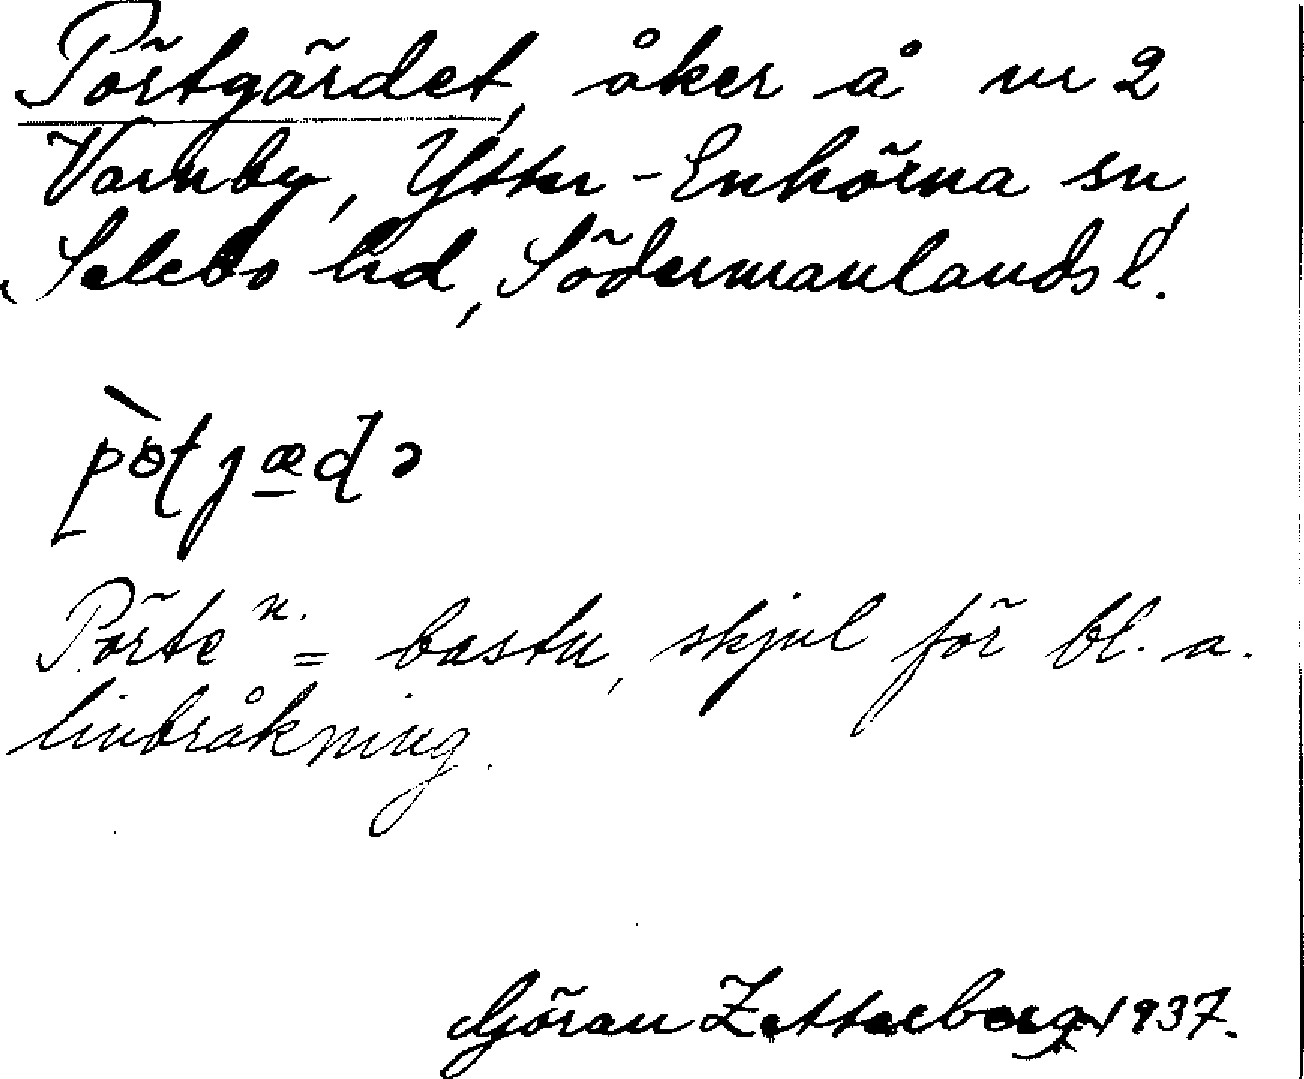 Pörtgärdet, åker å nr 2
Varnby, Ytter-Enhörna sn,
Selebo hd, Södermanlands l.
pò̈ʈjæɖə
Pörte n. = bastu, skjul för bl. a.
linbråkning.
Göran Zetterberg 1937.